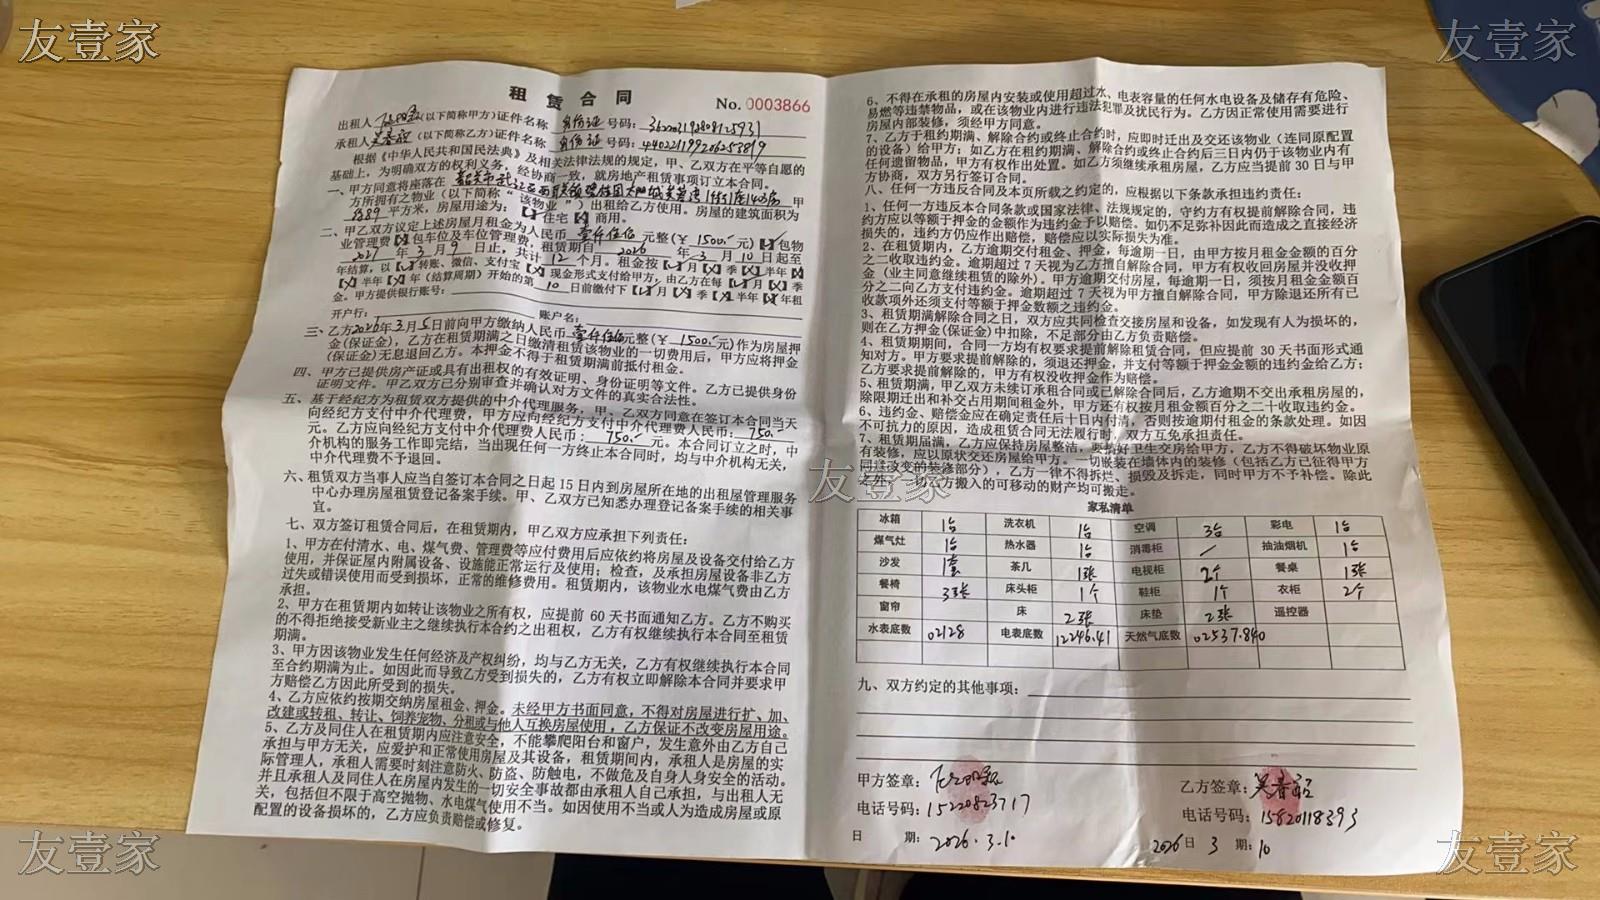 友壹家
友壹家
租赁合同
No. 0003866
出租人 (以下简称甲方)证件名称 身份证 号码:
承租人 (以下简称乙方)证件名称 身份证 号码:
根据《中华人民共和国民法典》及相关法律法规的规定，甲、乙双方在平等自愿的
基础上，为明确双方的权利义务，经协商一致，就房地产租赁事项订立本合同。
一、甲方同意将座落在 甲
方所拥有之物业（以下简称“该物业”）出租给乙方使用。房屋的建筑面积为
平方米，房屋用途为：住宅 商用。
二、甲乙双方议定上述房屋月租金为人民币 壹仟伍佰 元整(￥ 1500.- 元) 包物
业管理费 包车位及车位管理费，租赁期自 2026 年 3 月 10 日起至
2027 年 3 月 9 日止，共计 12 个月。租金按 月 季 半年
年结算，以 转账、微信、支付宝 现金形式支付给甲方，由乙方在每 月 季
半年 年（结算周期）开始的第 10 日前缴付下 月 季 半年 年租
金。甲方提供银行账号：
开户行： 账户名：
三、乙方2026年3月5日前向甲方缴纳人民币 壹仟伍佰元整(￥ 1500.- 元)作为房屋押
金(保证金)，乙方在租赁期满之日缴清租赁该物业的一切费用后，甲方应将押金
(保证金)无息退回乙方。本押金不得于租赁期满前抵付租金。
四、甲方已提供房产证或具有出租权的有效证明、身份证明等文件。乙方已提供身份
证明文件。甲乙双方已分别审查并确认对方文件的真实合法性。
五、基于经纪方为租赁双方提供的中介代理服务，甲、乙双方同意在签订本合同当天
向经纪方支付中介代理费，甲方应向经纪方支付中介代理费人民币： 750.-
元。乙方应向经纪方支付中介代理费人民币： 750.- 元。本合同订立之时，中
介机构的服务工作即完结，当出现任何一方终止本合同时，均与中介机构无关，
中介代理费不予退回。
六、租赁双方当事人应当自签订本合同之日起 15 日内到房屋所在地的出租屋管理服务
中心办理房屋租赁登记备案手续。甲、乙双方已知悉办理登记备案手续的相关事
宜。
七、双方签订租赁合同后，在租赁期内，甲乙双方应承担下列责任：
1、甲方在付清水、电、煤气费、管理费等应付费用后应依约将房屋及设备交付给乙方
使用，并保证屋内附属设备、设施能正常运行及使用；检查，及承担房屋设备非乙方
过失或错误使用而受到损坏，正常的维修费用。租赁期内，该物业水电煤气费由乙方
承担。
2、甲方在租赁期内如转让该物业之所有权，应提前 60 天书面通知乙方。乙方不购买
的不得拒绝接受新业主之继续执行本合约之出租权，乙方有权继续执行本合同至租赁
期满。
3、甲方因该物业发生任何经济及产权纠纷，均与乙方无关，乙方有权继续执行本合同
至合约期满为止。如因此而导致乙方受到损失的，乙方有权立即解除本合同并要求甲
方赔偿乙方因此所受到的损失。
4、乙方应依约按期交纳房屋租金、押金。未经甲方书面同意，不得对房屋进行扩、加、
改建或转租、转让、饲养宠物、分租或与他人互换房屋使用，乙方保证不改变房屋用途。
5、乙方及同住人在租赁期内应注意安全，不能攀爬阳台和窗户，发生意外由乙方自己
承担与甲方无关，应爱护和正常使用房屋及其设备，租赁期间内，承租人是房屋的实
际管理人，承租人需要时刻注意防火、防盗、防触电，不做危及自身人身安全的活动。
并且承租人及同住人在房屋内发生的一切安全事故都由承租人自己承担，与出租人无
关，包括但不限于高空抛物、水电煤气使用不当。如因使用不当或人为造成房屋或原
配置的设备损坏的，乙方应负责赔偿或修复。
6、不得在承租的房屋内安装或使用超过水、电表容量的任何水电设备及储存有危险、
易燃等违禁物品，或在该物业内进行违法犯罪及扰民行为。乙方因正常使用需要进行
房屋内部装修，须经甲方同意。
7、乙方于租约期满、解除合约或终止合约时，应即时迁出及交还该物业（连同原配置
的设备）给甲方；如乙方在租约期满、解除合约或终止合约后三日内仍于该物业内有
任何遗留物品，甲方有权作出处置。如乙方须继续承租房屋，乙方应当提前 30 日与甲
方协商，双方另行签订合同。
八、任何一方违反合同及本页所载之约定的，应根据以下条款承担违约责任：
1、任何一方违反本合同条款或国家法律、法规规定的，守约方有权提前解除合同，违
约方应以等额于押金的金额作为违约金予以赔偿。如仍不足弥补因此而造成之直接经济
损失的，违约方仍应作出赔偿，赔偿应以实际损失为准。
2、在租赁期内，乙方逾期交付租金、押金，每逾期一日，由甲方按月租金金额的百分
之二收取违约金。逾期超过 7 天视为乙方擅自解除合同，甲方有权收回房屋并没收押
金（业主同意继续租赁的除外）。甲方逾期交付房屋，每逾期一日，须按月租金金额百
分之二向乙方支付违约金。逾期超过 7 天视为甲方擅自解除合同，甲方除退还所有已
收款项外还须支付等额于押金数额之违约金。
3、租赁期满解除合同之日，双方应共同检查交接房屋和设备，如发现有人为损坏的，
则在乙方押金(保证金)中扣除，不足部分由乙方负责赔偿。
4、租赁期期间，合同一方均有权要求提前解除租赁合同，但应提前 30 天书面形式通
知对方。甲方要求提前解除的，须退还押金，并支付等额于押金金额的违约金给乙方；
乙方要求提前解除的，甲方有权没收押金作为赔偿。
5、租赁期满，甲乙双方未续订承租合同或已解除合同后，乙方逾期不交出承租房屋的，
除限期迁出和补交占用期间租金外，甲方还有权按月租金额百分之二十收取违约金。
6、违约金、赔偿金应在确定责任后十日内付清，否则按逾期付租金的条款处理。如因
不可抗力的原因，造成租赁合同无法履行时，双方互免承担责任。
7、租赁期届满，乙方应保持房屋整洁，要搞好卫生交房给甲方。乙方不得破坏物业原
有装修，应以原状交还房屋给甲方。一切嵌装在墙体内的装修（包括乙方已征得甲方
同意改变的装修部分），乙方一律不得拆烂、损毁及拆走，同时甲方不予补偿。除此
之外，一切乙方搬入的可移动的财产均可搬走。
友壹家
家私清单
冰箱 1台 洗衣机 1台 空调 3台 彩电 1台
煤气灶 1台 热水器 1台 消毒柜 / 抽油烟机 1台
沙发 1套 茶几 1张 电视柜 2个 餐桌 1张
餐椅 3张 床头柜 1个 鞋柜 1个 衣柜 2个
窗帘 床 2张 床垫 2张 遥控器
水表底数 02128 电表底数 12246.41 天然气底数 02537.840
九、双方约定的其他事项：
甲方签章： 乙方签章：
电话号码：15220823717 电话号码：15820118393
日 期：2026.3.10 2026日 3 期：10
友壹家
友壹家